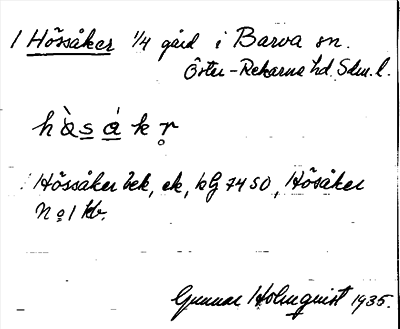 1 Hössåker 1/4 gård i Barva sn.
Öster-Rekarne hd. Sdm. l.
hàsákr̥
Hössåker bek, ek, kG 7450, Hösåker
No 1 kb.
Gunnar Holmquist 1935.